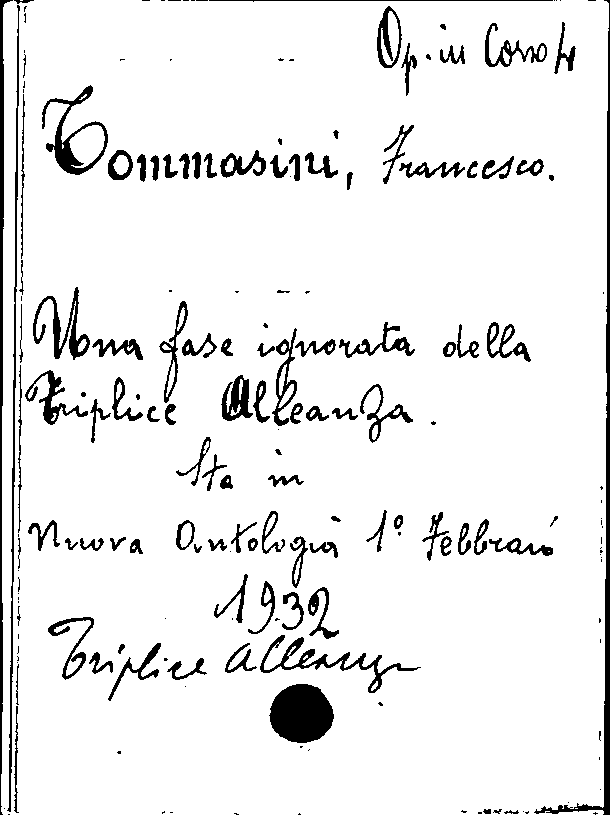 Op. in Corso 4
Tommasini, Francesco.
Una fase ignorata della
Triplice Alleanza.
Sta in
Nuova Antologia 1º Febbraio
1932
Triplice Alleanza